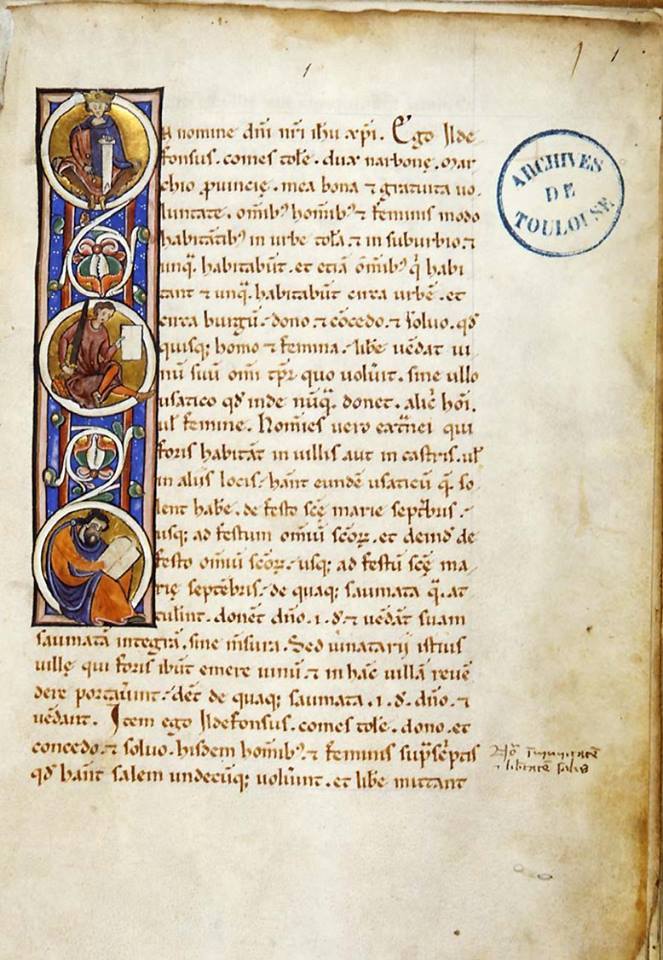 1
1
In nomine dñi nr̃i ihũ xp̃i. Ego Ilde
fonsus. comes tolẽ. dux narbonẹ. mar
chio ꝓuincię. mea bona ⁊ gratuita uo
luntate. omĩbꝰ homĩbꝰ ⁊ feminis modo
habitãtibꝰ in urbe tolã ⁊ in suburbio ⁊
unq̃. habitabũt. et etiã õmibꝰ q̃ habi
tant ⁊ unq̃. habitabũt circa urbẽ. et
circa burgũ. dono. ⁊ cõcedo. ⁊ solvo. qđ
quisq; homo ⁊ femina. libẽ uẽdat ui
nũ suũ omĩ tp̃r quo voluĩt. sine ullo
usatico qđ inde nũq̃. donet. alic̃ hoĩ.
ul̃ femine. Homies uero ext̃nei qui
foris habitãt in villis aut in castris. ul̃
in aliis locis. hãnt eundẽ usaticũ q̃. so
lent habẽ. de festo scẽ marie septẽbris.
usq; ad festum omiũ scõꝝ. et deinđ de
festo omiũ scõꝝ. usq; ad festũ scẽ ma
rię septẽbris. de quaq; saumata q̃. at
tulint. donẽt dño. i. đ. ⁊ uẽdãt suam
saumatã integrã. sine mẽsura. Sed uinatarii istius
villę qui foris ibũt emere uinũ. ⁊ in hãc villã reuẽ
dere portav̾int. dẽt de quaq; saumata .i. đ. dño. ⁊
uẽdant. Item ego Ildefonsus. comes tolẽ. dono. et
concedo. ⁊ solvo. hisdem homĩbꝰ. ⁊ feminis sup̃sc̾ptis
qđ hãnt salem undecũq; volũint. et libẽ mittant
ARCHIVES
DE
TOULOUSE